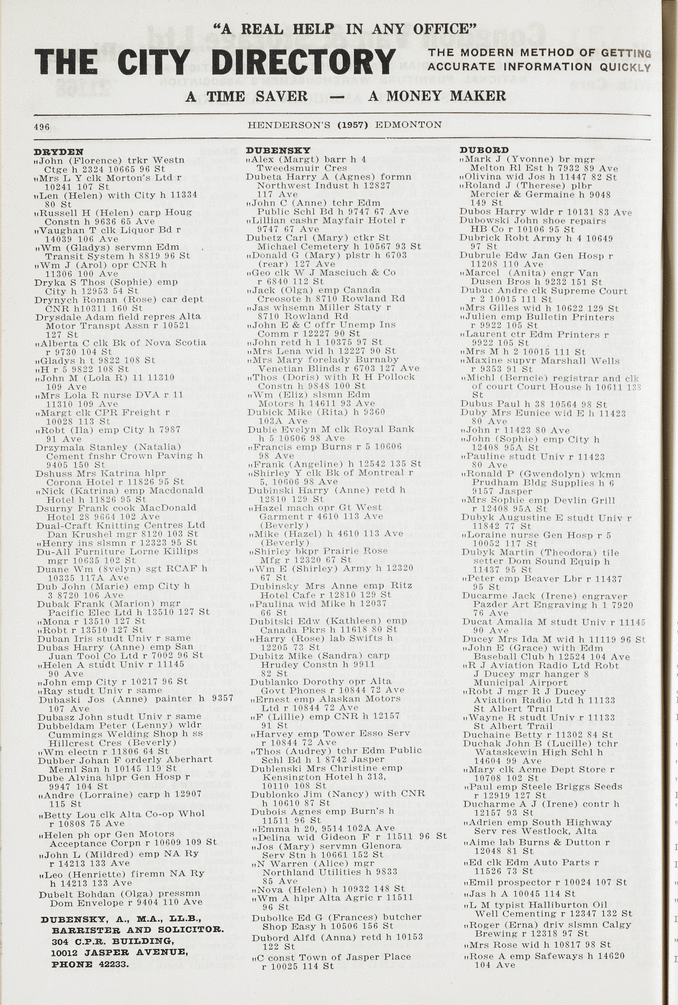 “A REAL HELP IN ANY OFFICE”
THE CITY DIRECTORY
THE MODERN METHOD OF GETTING
ACCURATE INFORMATION QUICKLY
A TIME SAVER — A MONEY MAKER
496
HENDERSON'S (1957) EDMONTON
DRYDEN
„John (Florence) trkr Westn
Ctge h 2324 10665 96 St
„Mrs L Y clk Morton's Ltd r
10241 107 St
„Len (Helen) with City h 11334
80 St
„Russell H (Helen) carp Houg
Constn h 9636 65 Ave
„Vaughan T clk Liquor Bd r
14039 106 Ave
„Wm (Gladys) servmn Edm
Transit System h 8819 96 St
„Wm J (Arol) opr CNR h
11306 100 Ave
Dryka S Thos (Sophie) emp
City h 12953 54 St
Drynych Roman (Rose) car dept
CNR h10311 160 St
Drysdale Adam field repres Alta
Motor Transpt Assn r 10521
127 St
„Alberta C clk Bk of Nova Scotia
r 9730 104 St
„Gladys h t 9822 108 St
„H r 5 9822 108 St
„John M (Lola R) 11 11310
109 Ave
„Mrs Lola R nurse DVA r 11
11310 109 Ave
„Margt clk CPR Freight r
10028 113 St
„Robt (Ila) emp City h 7987
91 Ave
Drzymala Stanley (Natalia)
Cement fnshr Crown Paving h
9405 150 St
Dshuss Mrs Katrina hlpr
Corona Hotel r 11826 95 St
„Nick (Katrina) emp Macdonald
Hotel h 11826 95 St
Dsurny Frank cook MacDonald
Hotel 28 9664 102 Ave
Dual-Craft Knitting Centres Ltd
Dan Krushel mgr 8120 103 St
„Henry ins slsmn r 12323 95 St
Du-All Furniture Lorne Killips
mgr 10635 102 St
Duane Wm (8velyn) sgt RCAF h
10335 117A Ave
Dub John (Marie) emp City h
3 8720 106 Ave
Dubak Frank (Marion) mgr
Pacific Elec Ltd h 13510 127 St
„Mona r 13510 127 St
„Robt r 13510 127 St
Duban Iris studt Univ r same
Dubas Harry (Anne) emp San
Juan Tool Co Ltd r 7002 96 St
„Helen A studt Univ r 11145
90 Ave
„John emp City r 10217 96 St
„Ray studt Univ r same
Dubaski Jos (Anne) painter h 9357
107 Ave
Dubasz John studt Univ r same
Dubbeldam Peter (Lenny) wldr
Cummings Welding Shop h ss
Hillcrest Cres (Beverly)
„Wm electn r 11806 64 St
Dubber Johan F orderly Aberhart
Meml San h 10145 119 St
Dube Alvina hlpr Gen Hosp r
9947 104 St
„Andre (Lorraine) carp h 12907
115 St
„Betty Lou clk Alta Co-op Whol
r 10808 75 Ave
„Helen ph opr Gen Motors
Acceptance Corpn r 10609 109 St
„John L (Mildred) emp NA Ry
r 14213 133 Ave
„Leo (Henriette) firemn NA Ry
h 14213 133 Ave
Dubelt Bohdan (Olga) pressmn
Dom Envelope r 9404 110 Ave
DUBENSKY, A., M.A., LL.B.,
BARRISTER AND SOLICITOR.
304 C.P.R. BUILDING,
10012 JASPER AVENUE,
PHONE 42233.
DUBENSKY
„Alex (Margt) barr h 4
Tweedsmuir Cres
Dubeta Harry A (Agnes) formn
Northwest Indust h 12827
117 Ave
„John C (Anne) tchr Edm
Public Schl Bd h 9747 67 Ave
„Lillian cashr Mayfair Hotel r
9747 67 Ave
Dubetz Carl (Mary) ctkr St
Michael Cemetery h 10567 93 St
„Donald G (Mary) plstr h 6703
(rear) 127 Ave
„Geo clk W J Masciuch & Co
r 6840 112 St
„Jack (Olga) emp Canada
Creosote h 8710 Rowland Rd
„Jas whsemn Miller Staty r
8710 Rowland Rd
„John E & C offr Unemp Ins
Comm r 12227 90 St
„John retd h 1 10375 97 St
„Mrs Lena wid h 12227 90 St
„Mrs Mary forelady Burnaby
Venetian Blinds r 6703 127 Ave
„Thos (Doris) with R H Pollock
Constn h 9848 100 St
„Wm (Eliz) slsmn Edm
Motors h 14611 93 Ave
Dubick Mike (Rita) h 9360
103A Ave
Dubie Evelyn M clk Royal Bank
h 5 10606 98 Ave
„Francis emp Burns r 5 10606
98 Ave
„Frank (Angeline) h 12542 135 St
„Shirley Y clk Bk of Montreal r
5, 10606 98 Ave
Dubinski Harry (Anne) retd h
12810 129 St
„Hazel mach opr Gt West
Garment r 4610 113 Ave
(Beverly)
„Mike (Hazel) h 4610 113 Ave
(Beverly)
„Shirley bkpr Prairie Rose
Mfg r 12320 67 St
„Wm E (Shirley) Army h 12320
67 St
Dubinsky Mrs Anne emp Ritz
Hotel Cafe r 12810 129 St
„Paulina wid Mike h 12037
66 St
Dubitski Edw (Kathleen) emp
Canada Pkrs h 11618 80 St
„Harry (Rose) lab Swifts h
12205 73 St
Dubitz Mike (Sandra) carp
Hrudey Constn h 9911
82 St
Dublanko Dorothy opr Alta
Govt Phones r 10844 72 Ave
„Ernest emp Alaskan Motors
Ltd r 10844 72 Ave
„F (Lillie) emp CNR h 12157
91 St
„Harvey emp Tower Esso Serv
r 10844 72 Ave
„Thos (Audrey) tchr Edm Public
Schl Bd h 1 8742 Jasper
Dublenski Mrs Christine emp
Kensington Hotel h 313,
10110 108 St
Dublonko Jim (Nancy) with CNR
h 10610 87 St
Dubois Agnes emp Burn's h
11511 96 St
„Emma h 20, 9514 102A Ave
„Delina wid Gideon F r 11511 96 St
„Jos (Mary) servmn Glenora
Serv Stn h 10661 152 St
„N Warren (Alice) mgr
Northland Utilities h 9833
85 Ave
„Nova (Helen) h 10932 148 St
„Wm A hlpr Alta Agric r 11511
96 St
Dubolke Ed G (Frances) butcher
Shop Easy h 10506 156 St
Dubord Alfd (Anna) retd h 10153
122 St
„C const Town of Jasper Place
r 10025 114 St
DUBORD
„Mark J (Yvonne) br mgr
Melton Rl Est h 7932 89 Ave
„Olivina wid Jos h 11447 82 St
„Roland J (Therese) plbr
Mercier & Germaine h 9048
149 St
Dubos Harry wldr r 10131 83 Ave
Dubowski John shoe repairs
HB Co r 10106 95 St
Dubrick Robt Army h 4 10649
97 St
Dubrule Edw Jan Gen Hosp r
11208 110 Ave
„Marcel (Anita) engr Van
Dusen Bros h 9232 151 St
Dubuc Andre clk Supreme Court
r 2 10015 111 St
„Mrs Gilles wid h 10622 129 St
„Julien emp Bulletin Printers
r 9922 105 St
„Laurent ctr Edm Printers r
9922 105 St
„Mrs M h 2 10015 111 St
„Maxine supvr Marshall Wells
r 9353 91 St
„Michl (Berncie) registrar and clk
of court Court House h 10611 138
St
Dubus Paul h 38 10564 98 St
Duby Mrs Eunice wid E h 11423
80 Ave
„John r 11423 80 Ave
„John (Sophie) emp City h
12408 95A St
„Pauline studt Univ r 11423
80 Ave
„Ronald P (Gwendolyn) wkmn
Prudham Bldg Supplies h 6
9157 Jasper
„Mrs Sophie emp Devlin Grill
r 12408 95A St
Dubyk Augustine E studt Univ r
11842 77 St
„Loraine nurse Gen Hosp r 5
10052 117 St
Dubyk Martin (Theodora) tile
setter Dom Sound Equip h
11437 95 St
„Peter emp Beaver Lbr r 11437
95 St
Ducarme Jack (Irene) engraver
Pazder Art Engraving h 1 7920
76 Ave
Ducat Amalia M studt Univ r 11145
90 Ave
Ducey Mrs Ida M wid h 11119 96 St
„John E (Grace) with Edm
Baseball Club h 12524 104 Ave
„R J Aviation Radio Ltd Robt
J Ducey mgr hanger 8
Municipal Airport
„Robt J mgr R J Ducey
Aviation Radio Ltd h 11133
St Albert Trail
„Wayne R studt Univ r 11133
St Albert Trail
Duchaine Betty r 11302 84 St
Duchak John B (Lucille) tchr
Wataskewin High Schl h
14604 99 Ave
„Mary clk Acme Dept Store r
10708 102 St
„Paul emp Steele Briggs Seeds
r 12919 127 St
Ducharme A J (Irene) contr h
12157 93 St
„Adrien emp South Highway
Serv res Westlock, Alta
„Aime lab Burns & Dutton r
12048 81 St
„Ed clk Edm Auto Parts r
11526 73 St
„Emil prospector r 10024 107 St
„Jas h A 10045 114 St
„L M typist Halliburton Oil
Well Cementing r 12347 132 St
„Roger (Erna) driv slsmn Calgy
Brewing r 12318 97 St
„Mrs Rose wid h 10817 98 St
„Rose A emp Safeways h 14620
104 Ave